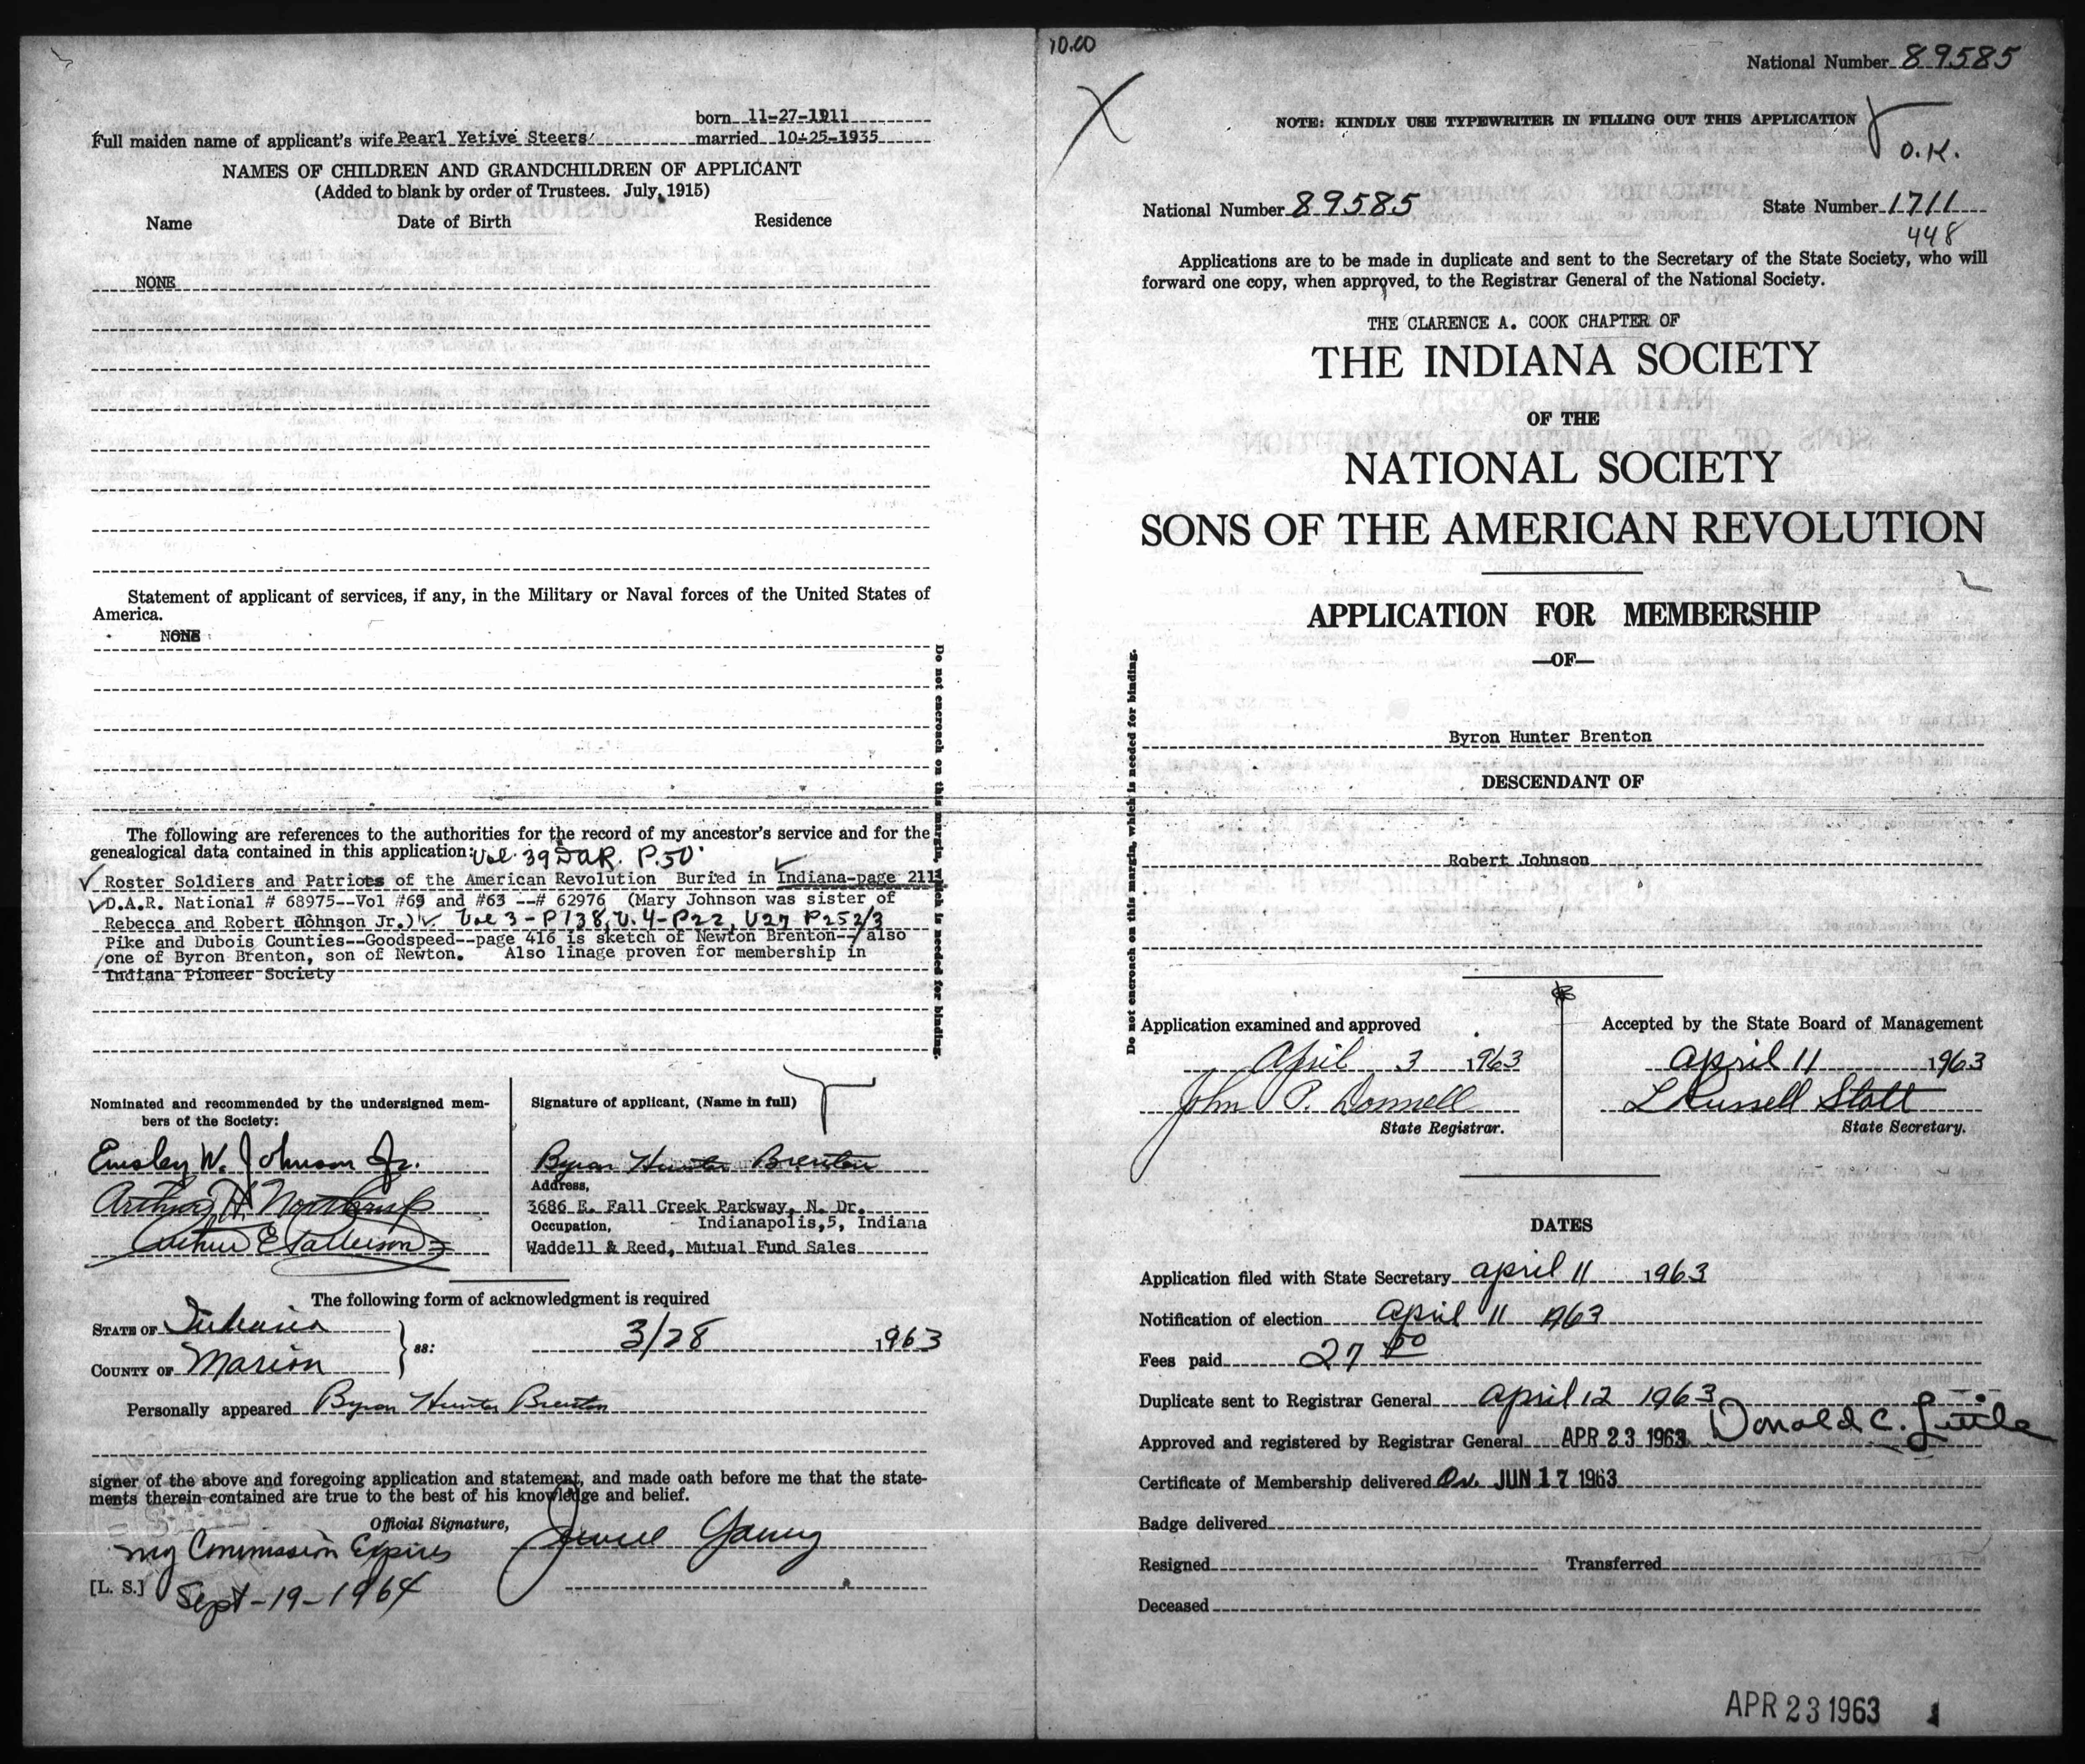 born 11-27-1911
Full maiden name of applicant's wife Pearl Yetive Steers married 10-25-1935
NAMES OF CHILDREN AND GRANDCHILDREN OF APPLICANT
(Added to blank by order of Trustees. July, 1915)
Name Date of Birth Residence
NONE
Statement of applicant of services, if any, in the Military or Naval forces of the United States of
America.
NONE
Do not encroach on this margin, which is needed for binding.
The following are references to the authorities for the record of my ancestor's service and for the
genealogical data contained in this application: Vol. 39 DAR. P.50
Roster Soldiers and Patriots of the American Revolution Buried in Indiana-page 211
D.A.R. National # 68975--Vol #69 and #63 --# 62976 (Mary Johnson was sister of
Rebecca and Robert Johnson Jr.) Vol 3 - P138, V. 4-P22, V27 P252/3
Pike and Dubois Counties--Goodspeed--page 416 is sketch of Newton Brenton--/also
/one of Byron Brenton, son of Newton. Also linage proven for membership in
Indiana Pioneer Society
Nominated and recommended by the undersigned mem-
bers of the Society:
Emsley W. Johnson Jr.
Arthur H. Northrup
Arthur E Patterson
Signature of applicant, (Name in full)
Byron Hunter Brenton
Address,
3686 E. Fall Creek Parkway, N. Dr.
Occupation, Indianapolis,5, Indiana
Waddell & Reed, Mutual Fund Sales
The following form of acknowledgment is required
STATE OF Indiana
COUNTY OF Marion
ss: 3/28 1963
Personally appeared Byron Hunter Brenton
signer of the above and foregoing application and statement, and made oath before me that the state-
ments therein contained are true to the best of his knowledge and belief.
Official Signature, Jewell Young
My Commission Expires
[L. S.] Sept-19-1964
10.00
National Number 89585
NOTE: KINDLY USE TYPEWRITER IN FILLING OUT THIS APPLICATION
O.K.
National Number 89585 State Number 1711
448
Applications are to be made in duplicate and sent to the Secretary of the State Society, who will
forward one copy, when approved, to the Registrar General of the National Society.
THE CLARENCE A. COOK CHAPTER OF
THE INDIANA SOCIETY
OF THE
NATIONAL SOCIETY
SONS OF THE AMERICAN REVOLUTION
APPLICATION FOR MEMBERSHIP
—OF—
Byron Hunter Brenton
DESCENDANT OF
Robert Johnson
Do not encroach on this margin, which is needed for binding.
Application examined and approved
April 3 1963
John P. Donnell
State Registrar.
Accepted by the State Board of Management
April 11 1963
L Russell Statt
State Secretary.
DATES
Application filed with State Secretary April 11 1963
Notification of election April 11 1963
Fees paid 27 50
Duplicate sent to Registrar General April 12 1963
Approved and registered by Registrar General APR 23 1963 Donald C. Little
Certificate of Membership delivered On JUN 17 1963
Badge delivered
Resigned Transferred
Deceased
APR 23 1963